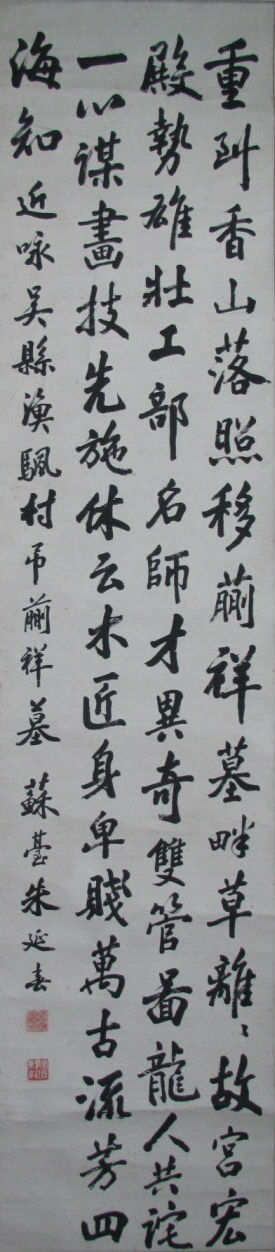 重到香山落照移蒯祥墓畔草離〻故宮宏
殿勢雄壯工部名師才異奇雙管畫龍人共詫
一心謀畫技先施休云木匠身卑賤萬古流芳四
海知 近咏吳縣漁帆村弔蒯祥墓 蘇臺朱延春